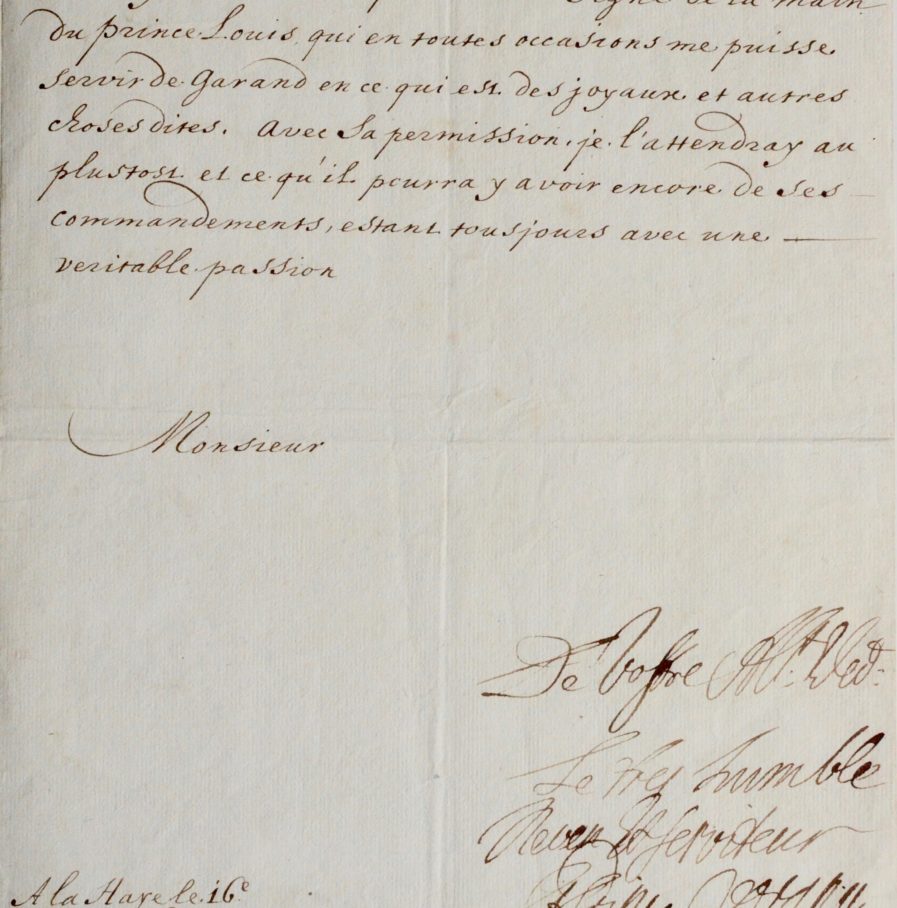 Signé de la main
du prince Louis qui en toutes occasions me puisse
servir de Garand en ce qui est des joyaux et autres
choses dites. Avec sa permission, je l'attendray au
plustost et ce qu'il pourra y avoir encore de ses
commandements, estant tousjours avec une
veritable passion
Monsieur
De Vostre
Le tres humble
serviteur
A la Haye le 16e